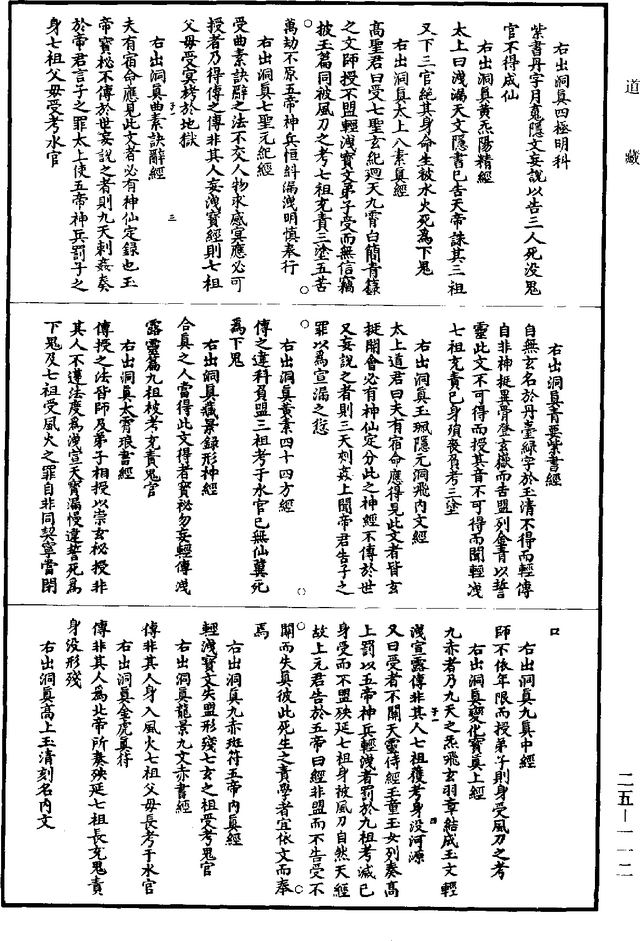 道藏
右出洞真四極明科
紫書丹字月魂隱文妄說以告三人死没鬼
官不得成仙
右出洞真黃炁陽精經
太上曰洩漏天文隱書已告天帝誅其三祖
又下三官絕其身命生被水火死為下鬼
右出洞真太上八素真經
高聖君曰受七聖玄紀迴天九霄白簡青籙
之文師授不盟輕洩寶文弟子受而無信竊
披玉篇同被風刀之考七祖充責三塗五苦
萬劫不原五帝神兵恒糾漏洩明慎奉行
右出洞真七聖元紀經
受曲素訣辭之法不交人物求感冥應必可
授者乃得傳之傳非其人妄洩寶經則七祖
父母受冥栲於地獄
右出洞真曲素訣辭經
三
夫有宿命應見此文者必有神仙定錄也玉
帝寶秘不傳於世妄說之者則九天刺姦奏
於帝君言子之罪太上使五帝神兵罰子之
身七祖父母受考水官
右出洞真青要紫書經
自無玄名於丹臺綠字於玉清不得而輕傳
自非神挺異骨登玄嶽而告盟列金青以誓
靈此文不可得而授其音不可得而聞輕洩
七祖充責己身殞喪負考三塗
右出洞真玉珮隱元洞飛内文經
太上道君曰夫有宿命應得見此文者皆玄
挺開會必有神仙定分此之神經不傳於世
又妄說之者則三天刺姦上聞帝君告子之
罪以為宣漏之愆
右出洞真黃素四十四方經
傳之違科負盟三祖考于水官己無仙冀死
為下鬼
右出洞真藏景錄形神經
合真之人當得此文得者寶秘勿妄輕傳洩
露靈篇九祖被考充責鬼官
右出洞真太霄琅書經
傳授之法皆師及弟子相授以崇玄秘授非
其人不遵法度為洩宣天寶漏慢違誓死為
下鬼及七祖受風火之罪自非同契寧當閉
口
右出洞真九真中經
師不依年限而授弟子則身受風刀之考
右出洞真變化寶真上經
九赤者乃九天之炁飛玄羽章結成玉文輕
洩宣露傳非其人七祖獲考身没河源
四
又曰受者不關天靈侍經玉童玉女列奏高
上罰以五帝神兵輕洩者罰於九祖考滅己
身受而不盟殃延七祖身被風刀自然天經
故上元君告於五帝曰經非盟而不告受不
關而失真彼此死生之責學者宜依文而奉
焉
右出洞真九赤班符五帝内真經
輕洩寶文失盟形殘七玄之祖受考鬼官
右出洞真龍景九文赤書經
傳非其人身入風火七祖父母長考于水官
右出洞真金虎真符
傳非其人為北帝所奏殃延七祖長充鬼責
身没形殘
右出洞真高上玉清刻名内文
二五－一一二